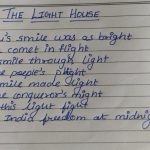 The Light House
's smile was as bright
comet in flight
smile through light
e people's plight
smile made light
e conqueror's might
this light fight
India freedom at midnigh